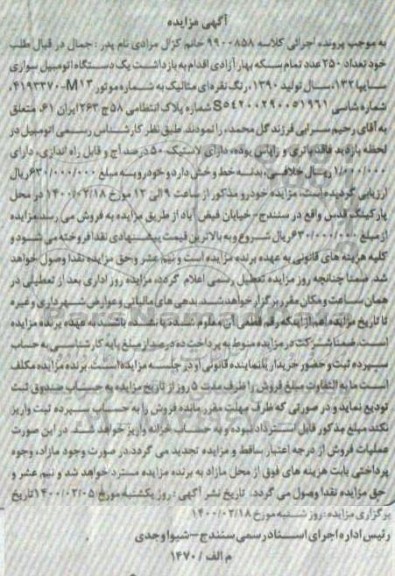 آگهی مزایده
به موجب پرونده اجرائی کلاسه ۹۹۰۰۸۵۸ خانم کژال مرادی نام پدر : جمال در قبال طلب
خود تعداد ۲۵۰ عدد تمام سکه بهار آزادی اقدام به بازداشت یک دستگاه اتومبیل سواری
سایپا ۱۳۲، سال تولید ۱۳۹۰، رنگ نقره ای متالیک به شماره موتور ۴۱۹۳۳۷۰-M13،
شماره شاسی S54200290051961 شماره پلاک انتظامی ۵۸ ج ۲۶۳ ایران ۶۱، متعلق
به آقای رحیم سرابی فرزند گل محمد، را نمودند. طبق نظر کارشناس رسمی اتومبیل در
لحظه بازدید فاقد باتری و زاپاس بوده، دارای لاستیک ۵۰ درصد آج و قابل راه اندازی، دارای
۱/۰۰۰/۰۰۰ ریال خلافی، بدنه خط و خش دار و خودرو به مبلغ ۶۳۰/۰۰۰/۰۰۰ ریال
ارزیابی گردیده است. مزایده خودرو مذکور از ساعت ۹ الی ۱۲ مورخ ۱۴۰۰/۰۲/۱۸ در محل
پارکینگ قدس واقع در سنندج- خیابان فیض آباد از طریق مزایده به فروش می رسد. مزایده
از مبلغ ۶۳۰/۰۰۰/۰۰۰ ریال شروع و به بالاترین قیمت پیشنهادی نقدا فروخته می شود و
کلیه هزینه های قانونی به عهده برنده مزایده است و نیم عشر و حق مزایده نقدا وصول خواهد
شد. ضمنا چنانچه روز مزایده تعطیل رسمی اعلام گردد، مزایده روز اداری بعد از تعطیلی در
همان ساعت و مکان مقرر برگزار خواهد شد. بدهی های مالیاتی و عوارض شهرداری و غیره
تا تاریخ مزایده اعم از اینکه رقم قطعی آن معلوم شده یا نشده باشد به عهده برنده مزایده
است. ضمنا شرکت در مزایده منوط به پرداخت ده درصد از مبلغ پایه کارشناسی به حساب
سپرده ثبت و حضور خریدار یا نماینده قانونی او در جلسه مزایده است. برنده مزایده مکلف
است ما به التفاوت مبلغ فروش را ظرف مدت ۵ روز از تاریخ مزایده به حساب صندوق ثبت
تودیع نماید و در صورتی که ظرف مهلت مقرر مانده فروش را به حساب سپرده ثبت واریز
نکند مبلغ مذکور قابل استرداد نبوده و به حساب خزانه واریز خواهد شد. در این صورت
عملیات فروش از درجه اعتبار ساقط و مزایده تجدید می گردد. در صورت وجود مازاد، وجوه
پرداختی بابت هزینه های فوق از محل مازاد به برنده مزایده مسترد خواهد شد و نیم عشر و
حق مزایده نقدا وصول می گردد. تاریخ نشر آگهی : روز یکشنبه مورخ ۱۴۰۰/۰۲/۰۵ تاریخ
برگزاری مزایده : روز شنبه مورخ ۱۴۰۰/۰۲/۱۸
رئیس اداره اجرای اسناد رسمی سنندج - شیوا وجدی
م الف / ۱۴۷۰